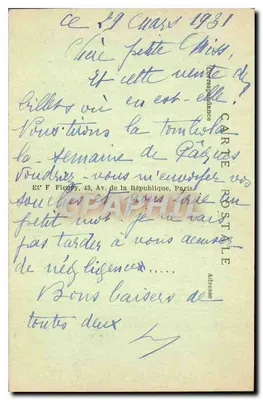 Ce 29 mars 1931
petite Miss,
Et cette vente de
billets où en est-elle?
Nous tirons la tombola
la semaine de Pâques
voudrez-vous m'envoyer vos
souches
petit mot je
pas tarder à vous accuser
de négligence.....
Bons baisers de
toutes deux
CARTE POSTALE
Correspondance
Adresse
Ets F. Fleury, 43, Av. de la République, Paris
CPAPHIL